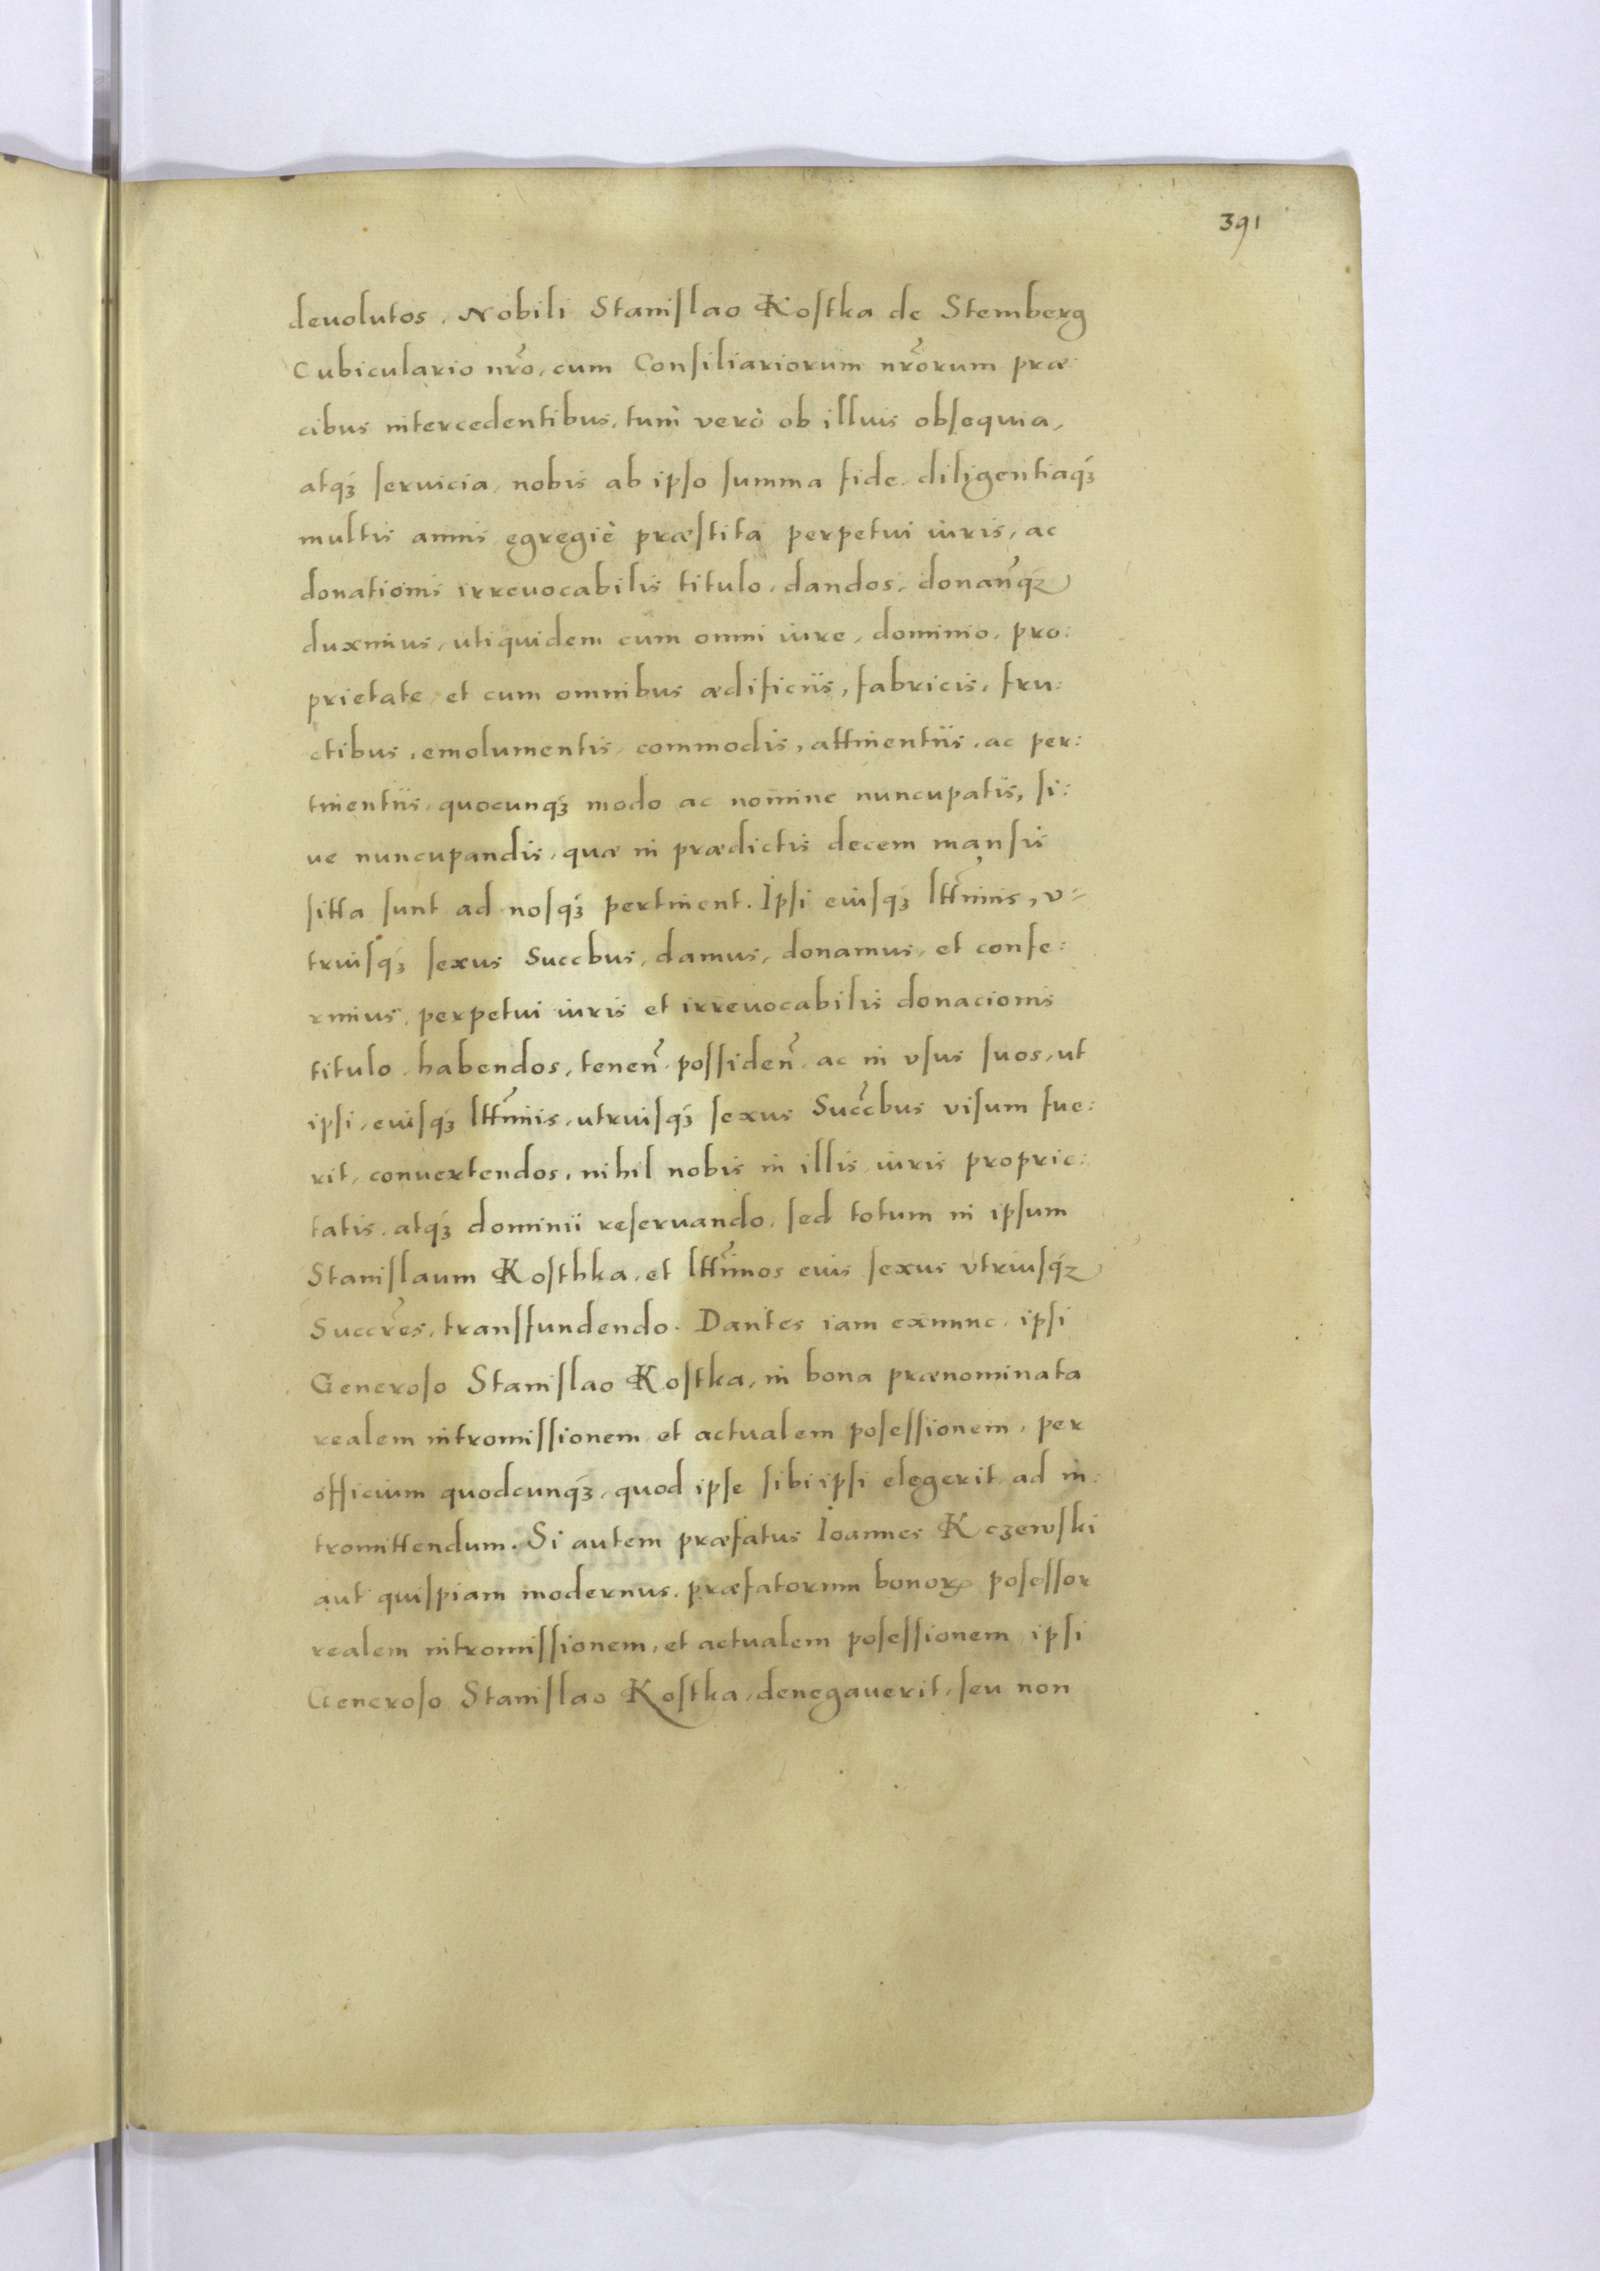 391
deuolutos, Nobili Stanislao Kostka de Stemberg
Cubiculario nr̃o, cum Consiliariorum nr̃orum præ:
cibus intercedentibus, tum verò ob illius obsequia,
atq́ꝫ seruicia, nobis ab ipso summa fide, diligentiaq́ꝫ
multis annis egregiè præstita perpetui iuris, ac
donationis irreuocabilis titulo, dandos, donan̄q́ꝫ
duximus, utiquidem cum omni iure, dominio, pro:
prietate, et cum omnibus ædificiis, fabricis, fru:
ctibus, emolumentis, commodis, attinentiis, ac per:
tinentiis, quocunq́ꝫ modo ac nomine nuncupatis, si:
ue nuncupandis, quæ in prædictis decem mansis
sitta sunt ad nosq́ꝫ pertinent. Ipsi eiusq́ꝫ ltt̃imis, v:
triusq́ꝫ sexus Succbus, damus, donamus, et confe:
rimus, perpetui iuris et irreuocabilis donacionis
titulo, habendos, tenen̄, possiden̄, ac in vsus suos, ut
ipsi, eiusq́ꝫ ltt̃imis, utriusq́ꝫ sexus Succ̃bus visum fue:
rit, conuertendos, nihil nobis in illis iuris proprie:
tatis, atq́ꝫ dominii reseruando, sed totum in ipsum
Stanislaum Kosthka, et ltt̃imos eius sexus vtriusq́ꝫ
Succr̃es, transfundendo. Dantes iam exnunc, ipsi
Generoso Stanislao Kostka, in bona prænominata
realem intromissionem et actualem posessionem, per
officium quodcunq́ꝫ, quod ipse sibi ipsi elegerit ad in:
tromittendum. Si autem præfatus Ioannes Kczewski
aut quispiam modernus, præfatorum bonoꝝ posessor
realem intromissionem, et actualem posessionem ipsi
Generoso Stanislao Kostka, denegauerit, seu non